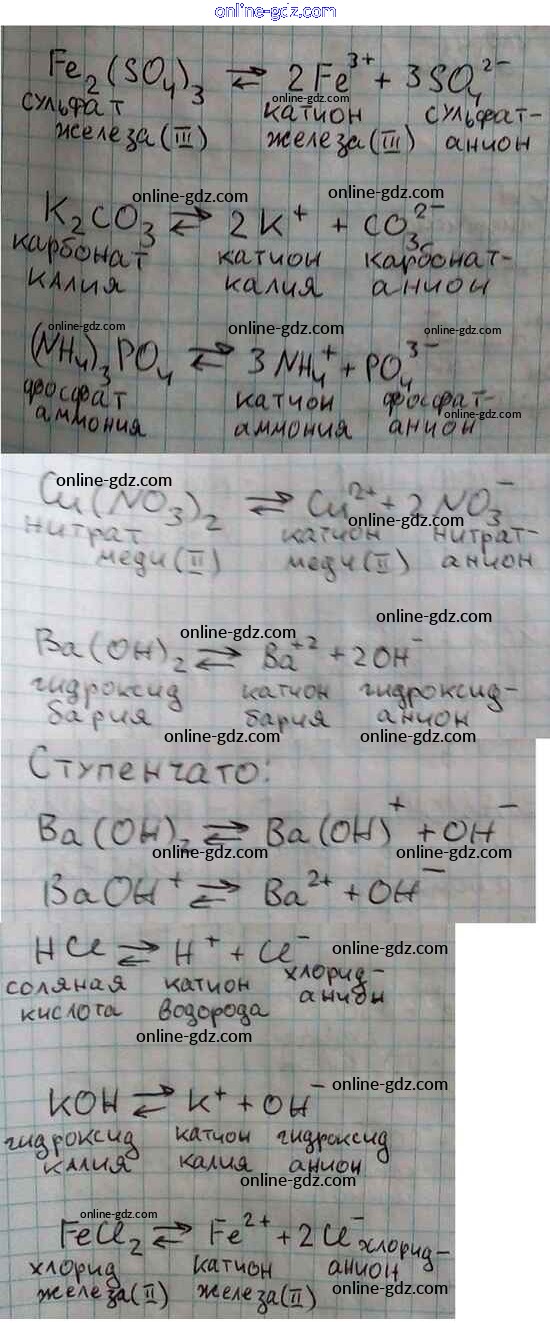 online-gdz.com
Fe₂(SO₄)₃ ⇌ 2Fe³⁺ + 3SO₄²⁻
online-gdz.com
сульфат катион сульфат-
железа(III) железа(III) анион
online-gdz.com
online-gdz.com online-gdz.com
K₂CO₃ ⇌ 2K⁺ + CO₃²⁻
карбонат катион карбонат-
калия калия анион
online-gdz.com online-gdz.com online-gdz.com
(NH₄)₃PO₄ ⇌ 3NH₄⁺ + PO₄³⁻
фосфат катион фосфат-
online-gdz.com
аммония аммония анион
online-gdz.com
Cu(NO₃)₂ ⇌ Cu²⁺ + 2NO₃⁻
online-gdz.com
нитрат катион нитрат-
меди(II) меди(II) анион
online-gdz.com
online-gdz.com
Ba(OH)₂ ⇌ Ba⁺² + 2OH⁻
гидроксид катион гидроксид-
бария бария анион
online-gdz.com online-gdz.com
Ступенчато:
Ba(OH)₂ ⇌ Ba(OH)⁺ + OH⁻
online-gdz.com online-gdz.com
BaOH⁺ ⇌ Ba²⁺ + OH⁻
HCl ⇌ H⁺ + Cl⁻
online-gdz.com
соляная катион хлорид-
кислота водорода анион
online-gdz.com
online-gdz.com
KOH ⇌ K⁺ + OH⁻
гидроксид катион гидроксид
калия калия анион
online-gdz.com
online-gdz.com
FeCl₂ ⇌ Fe²⁺ + 2Cl⁻ хлорид-
хлорид катион анион
железа(II) железа(II)
online-gdz.com